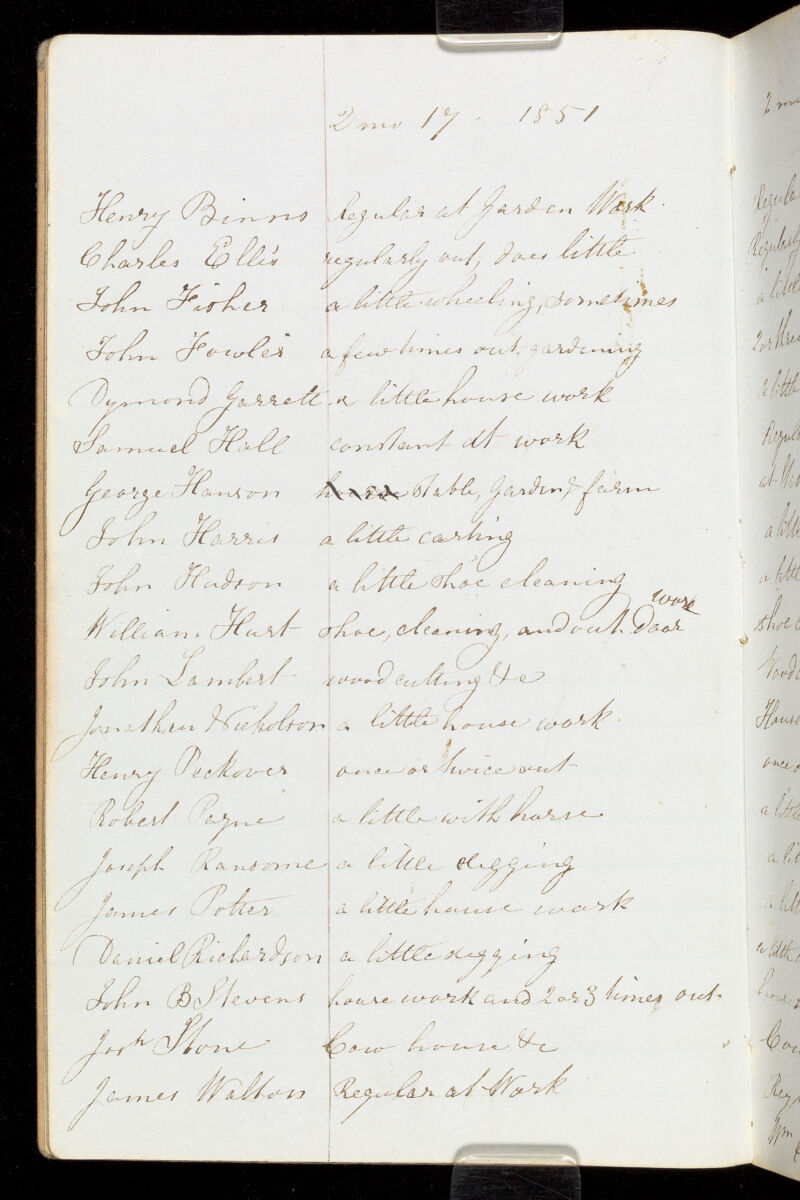 2 mo 17. 1851
Henry Binns Regular at Garden Work.
Charles Ellis regularly out, does little
John Fisher a little wheeling, sometimes
John Fowler a few times out, gardening
Dymond Garrett. a little house work
Samuel Hall constant at work
George Hanson stable, Garden & farm
John Harris a little carting
John Hudson a little shoe cleaning
work
William Hurt shoe, cleaning, and out. Door
John Lambert wood cutting &c
Jonathan Nicholson a little house work.
Henry Peckover once or twice out
Robert Payne a little with horse
Joseph Ransome a little digging
James Potter a little house work
Daniel Richardson a little digging
John B Stevens house work and 2 or 3 times out.
Josh Stone Cow house &c
James Walton Regular at Work
2
Regular
Regularly
a little
2 or three
a little
Regular
at
a little
a little
shoe
House
once
a little
a
a
a little